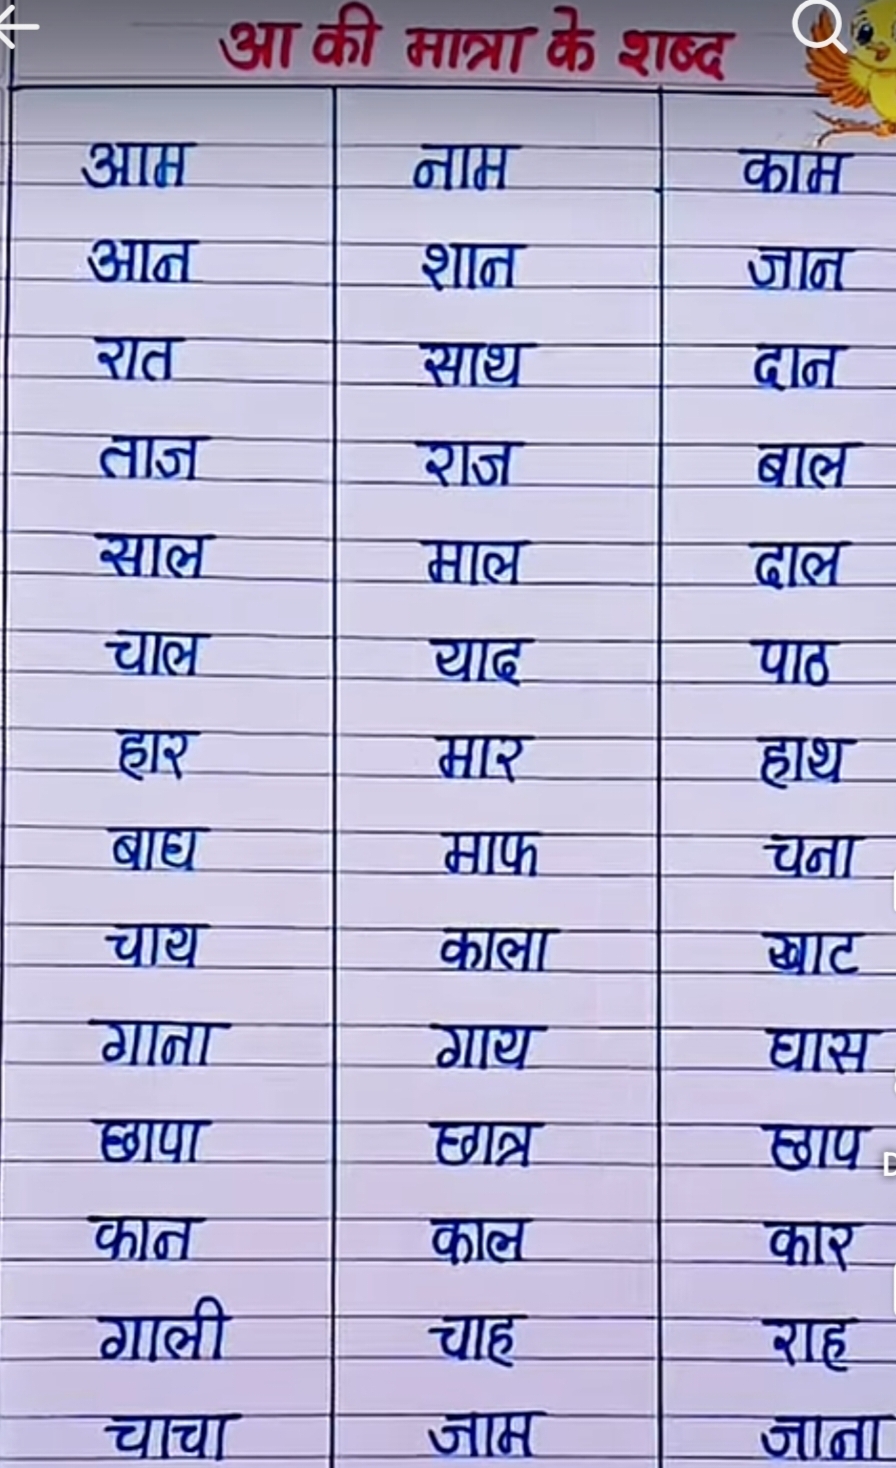 आ की मात्रा के शब्द
आम नाम काम
आन शान जान
रात साथ दान
ताज राज बाल
साल माल दाल
चाल याद पाठ
हार मार हाथ
बाघ माफ चना
चाय काला खाट
गाना गाय घास
छापा छात्र छाप
कान काल कार
गाली चाह राह
चाचा जाम जाना